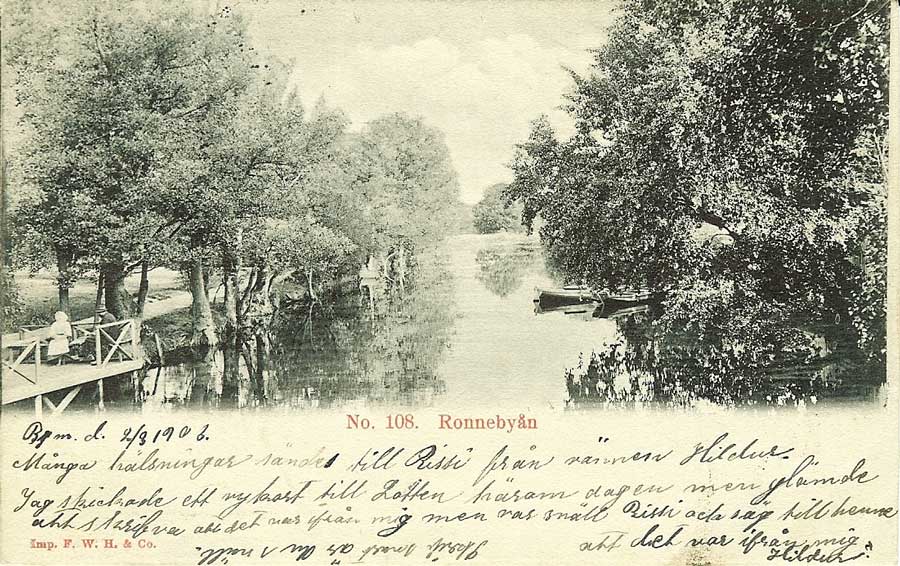 No. 108. Ronnebyån
Bjm. d. 2/3 1902.
Många hälsningar sändes till Rissi från vännen Hildur.
Jag skickade ett vykort till Lotten häram dagen men glömde
att skrifva att det var ifrån mig men var snäll Rissi och sag till henne
att det var ifrån mig
Hildur
Skrif snart är du snäll.
Imp. F. W. H. & Co.